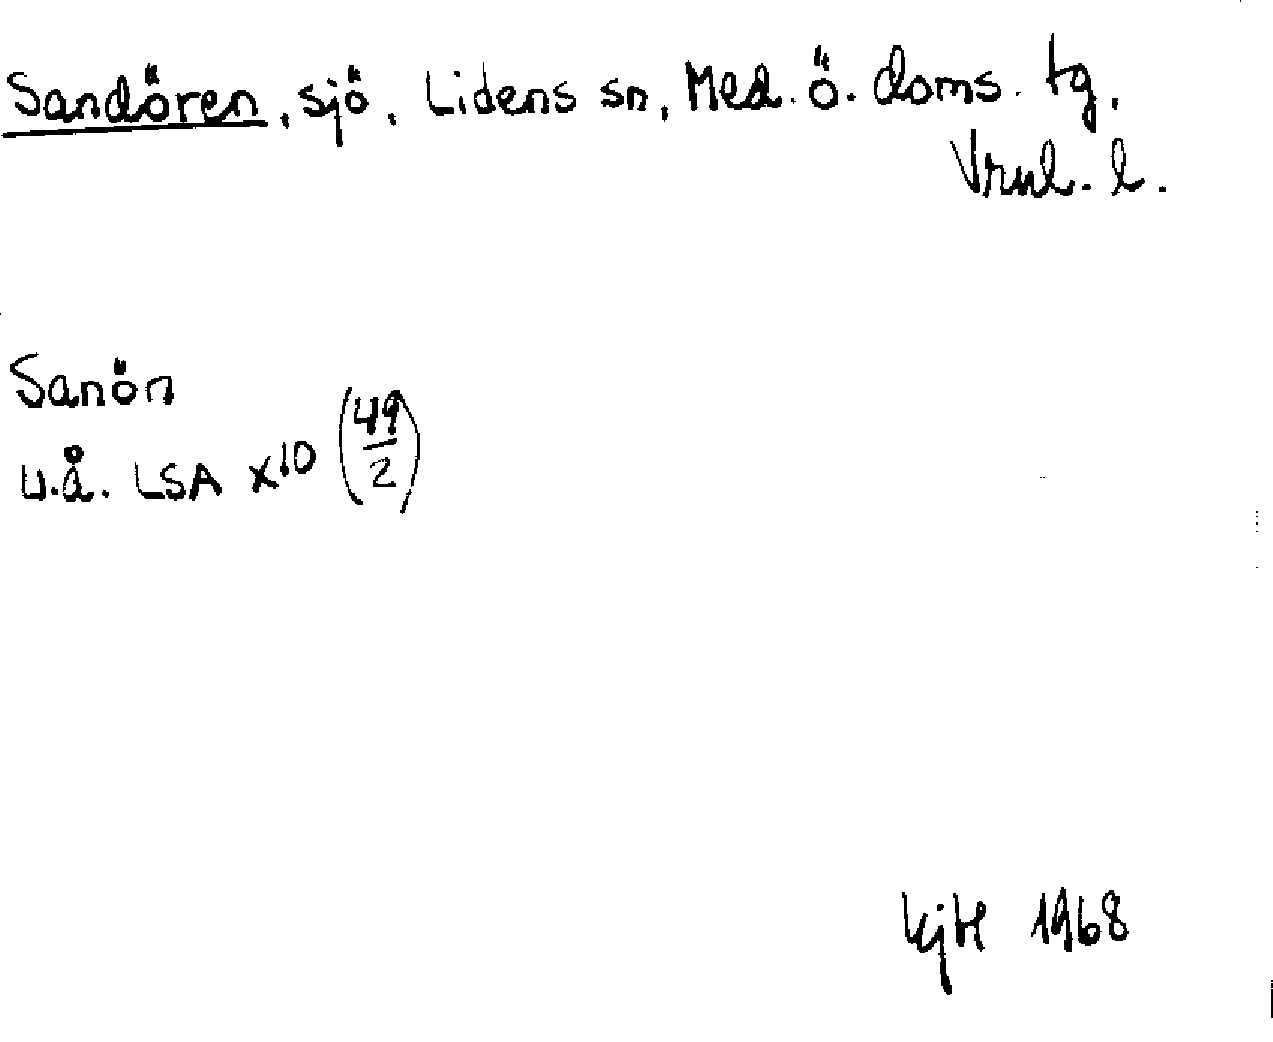 Sandören, sjö, Lidens sn, Med. ö. doms. tg.
Vrnl. l.
Sanön
u.å. LSA X10 (49/2)
KjH 1968